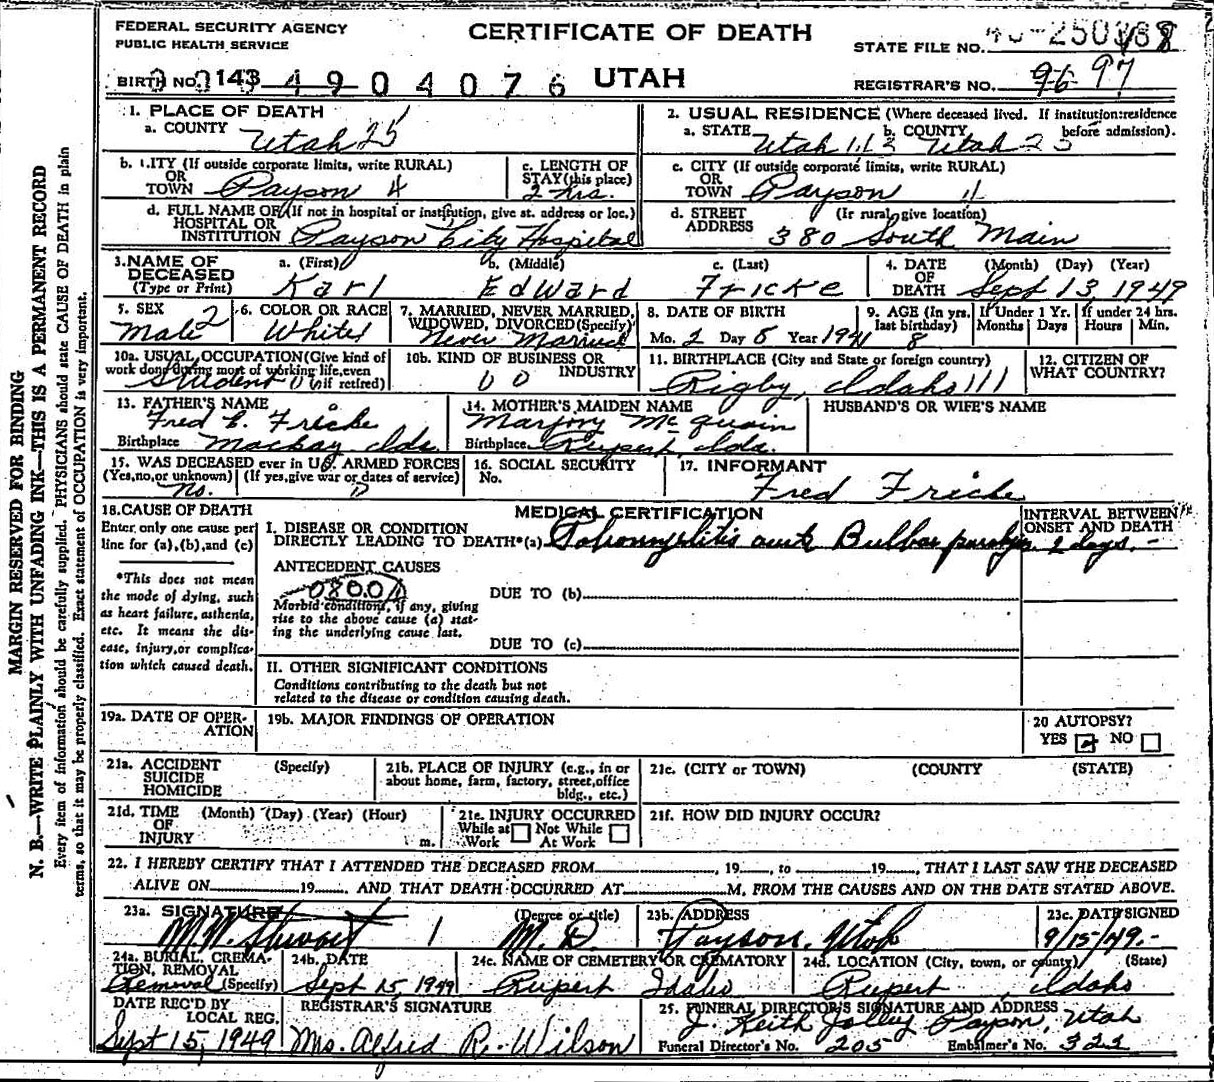 FEDERAL SECURITY AGENCY
PUBLIC HEALTH SERVICE
CERTIFICATE OF DEATH
STATE FILE NO.
BIRTH NO. 143 4904076
UTAH
REGISTRAR'S NO. 96 97
1. PLACE OF DEATH
a. COUNTY Utah 25
2. USUAL RESIDENCE (Where deceased lived. If institution: residence before admission).
a. STATE Utah b. COUNTY Utah
b. CITY (If outside corporate limits, write RURAL)
OR TOWN Payson 4
c. LENGTH OF STAY (this place)
2 hrs.
c. CITY (If outside corporate limits, write RURAL)
OR TOWN Payson
d. FULL NAME OF (If not in hospital or institution, give st. address or loc.)
HOSPITAL OR INSTITUTION Payson City Hospital
d. STREET ADDRESS (If rural, give location)
380 South Main
3. NAME OF DECEASED
(Type or Print)
a. (First) Karl
b. (Middle) Edward
c. (Last) Fricke
4. DATE OF DEATH (Month) (Day) (Year)
Sept 13, 1949
5. SEX
Male 2
6. COLOR OR RACE
White
7. MARRIED, NEVER MARRIED, WIDOWED, DIVORCED (Specify)
Never Married
8. DATE OF BIRTH
Mo. 2 Day 8 Year 1941
9. AGE (In yrs. last birthday)
8
If Under 1 Yr.
Months Days
If under 24 hrs.
Hours Min.
10a. USUAL OCCUPATION (Give kind of work done during most of working life, even if retired)
Student
10b. KIND OF BUSINESS OR INDUSTRY
11. BIRTHPLACE (City and State or foreign country)
Rigby, Idaho
12. CITIZEN OF WHAT COUNTRY?
13. FATHER'S NAME
Fred Fricke
Birthplace Mackay Ida.
14. MOTHER'S MAIDEN NAME
Marjory McQuain
Birthplace Rupert, Ida.
HUSBAND'S OR WIFE'S NAME
15. WAS DECEASED ever in U.S. ARMED FORCES
(Yes, no, or unknown) (If yes, give war or dates of service)
No.
16. SOCIAL SECURITY No.
17. INFORMANT
Fred Fricke
18. CAUSE OF DEATH
Enter only one cause per line for (a), (b), and (c)
MEDICAL CERTIFICATION
INTERVAL BETWEEN ONSET AND DEATH
I. DISEASE OR CONDITION DIRECTLY LEADING TO DEATH*(a) Poliomyelitis Bulbar 2 days.
*This does not mean the mode of dying, such as heart failure, asthenia, etc. It means the disease, injury, or complication which caused death.
ANTECEDENT CAUSES
080.0
Morbid conditions, if any, giving rise to the above cause (a) stating the underlying cause last.
DUE TO (b)
DUE TO (c)
II. OTHER SIGNIFICANT CONDITIONS
Conditions contributing to the death but not related to the disease or condition causing death.
19a. DATE OF OPERATION
19b. MAJOR FINDINGS OF OPERATION
20 AUTOPSY?
YES NO
21a. ACCIDENT SUICIDE HOMICIDE (Specify)
21b. PLACE OF INJURY (e.g., in or about home, farm, factory, street, office bldg., etc.)
21c. (CITY or TOWN) (COUNTY) (STATE)
21d. TIME OF INJURY (Month) (Day) (Year) (Hour) m.
21e. INJURY OCCURRED
While at Work Not While At Work
21f. HOW DID INJURY OCCUR?
22. I HEREBY CERTIFY THAT I ATTENDED THE DECEASED FROM 19 , to 19 , THAT I LAST SAW THE DECEASED
ALIVE ON 19 , AND THAT DEATH OCCURRED AT M. FROM THE CAUSES AND ON THE DATE STATED ABOVE.
23a. SIGNATURE (Degree or title)
M. W. Stewart M.D.
23b. ADDRESS
Payson, Utah
23c. DATE SIGNED
9/15/49.
24a. BURIAL, CREMATION, REMOVAL (Specify)
Removal
24b. DATE
Sept 15 1949
24c. NAME OF CEMETERY OR CREMATORY
Rupert Idaho
24d. LOCATION (City, town, or county) (State)
Rupert, Idaho
DATE REC'D BY LOCAL REG.
Sept 15, 1949
REGISTRAR'S SIGNATURE
Mrs. Alfred R. Wilson
25. FUNERAL DIRECTOR'S SIGNATURE AND ADDRESS
J. Keith Jolley Payson, Utah
Funeral Director's No. 205 Embalmer's No. 322
MARGIN RESERVED FOR BINDING
N. B.—WRITE PLAINLY WITH UNFADING INK—THIS IS A PERMANENT RECORD
Every item of information should be carefully supplied. PHYSICIANS should state CAUSE OF DEATH in plain
terms, so that it may be properly classified. Exact statement of OCCUPATION is very important.